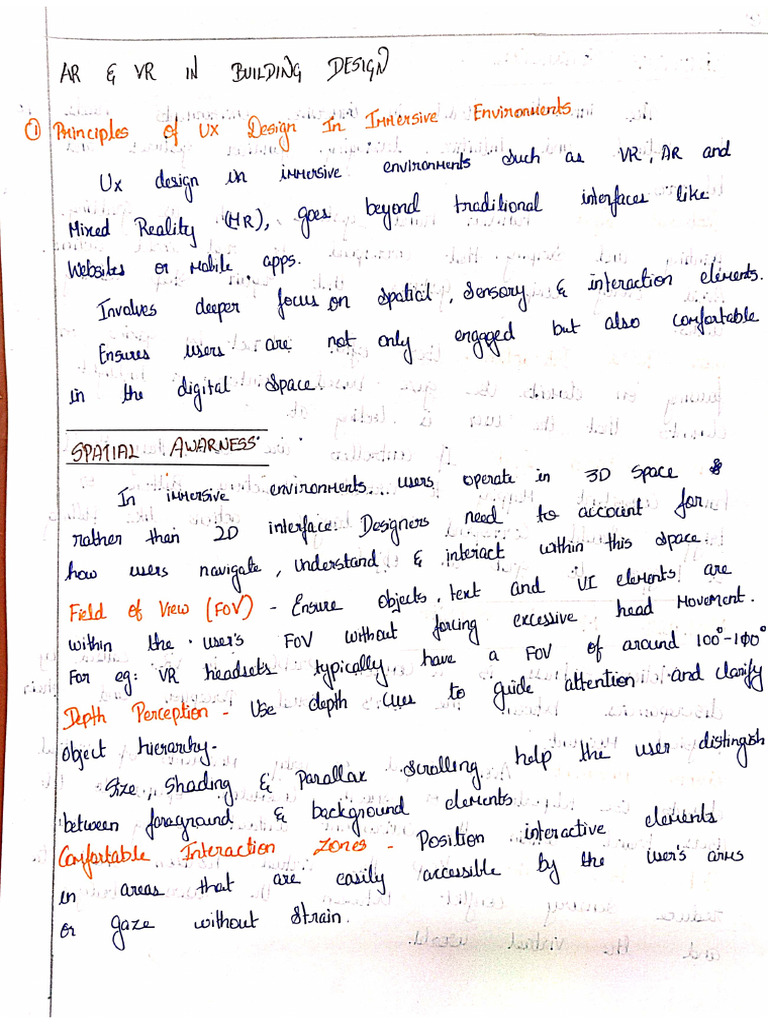 AR & VR IN BUILDING DESIGN
① Principles of UX Design In Immersive Environments
Ux design in immersive environments such as VR, AR and
Mixed Reality (MR), goes beyond traditional interfaces like
Websites or Mobile apps.
Involves deeper focus on spatial, sensory & interaction elements.
Ensures users are not only engaged but also comfortable
in the digital space.
SPATIAL AWARNESS
In immersive environments users operate in 3D space
rather than 2D interface. Designers need to account for
how users navigate, understand & interact within this space.
Field of View (FOV) - Ensure objects, text and UI elements are
within the user's FOV without forcing excessive head movement.
For eg: VR headsets typically have a FOV of around 100°-110°
Depth Perception - Use depth cues to guide attention and clarify
object hierarchy.
Size, Shading & Parallax Scrolling help the user distingish
between foreground & background elements
Comfortable Interaction Zones - Position interactive elements
in areas that are easily accessible by the user's arms
or gaze without strain.